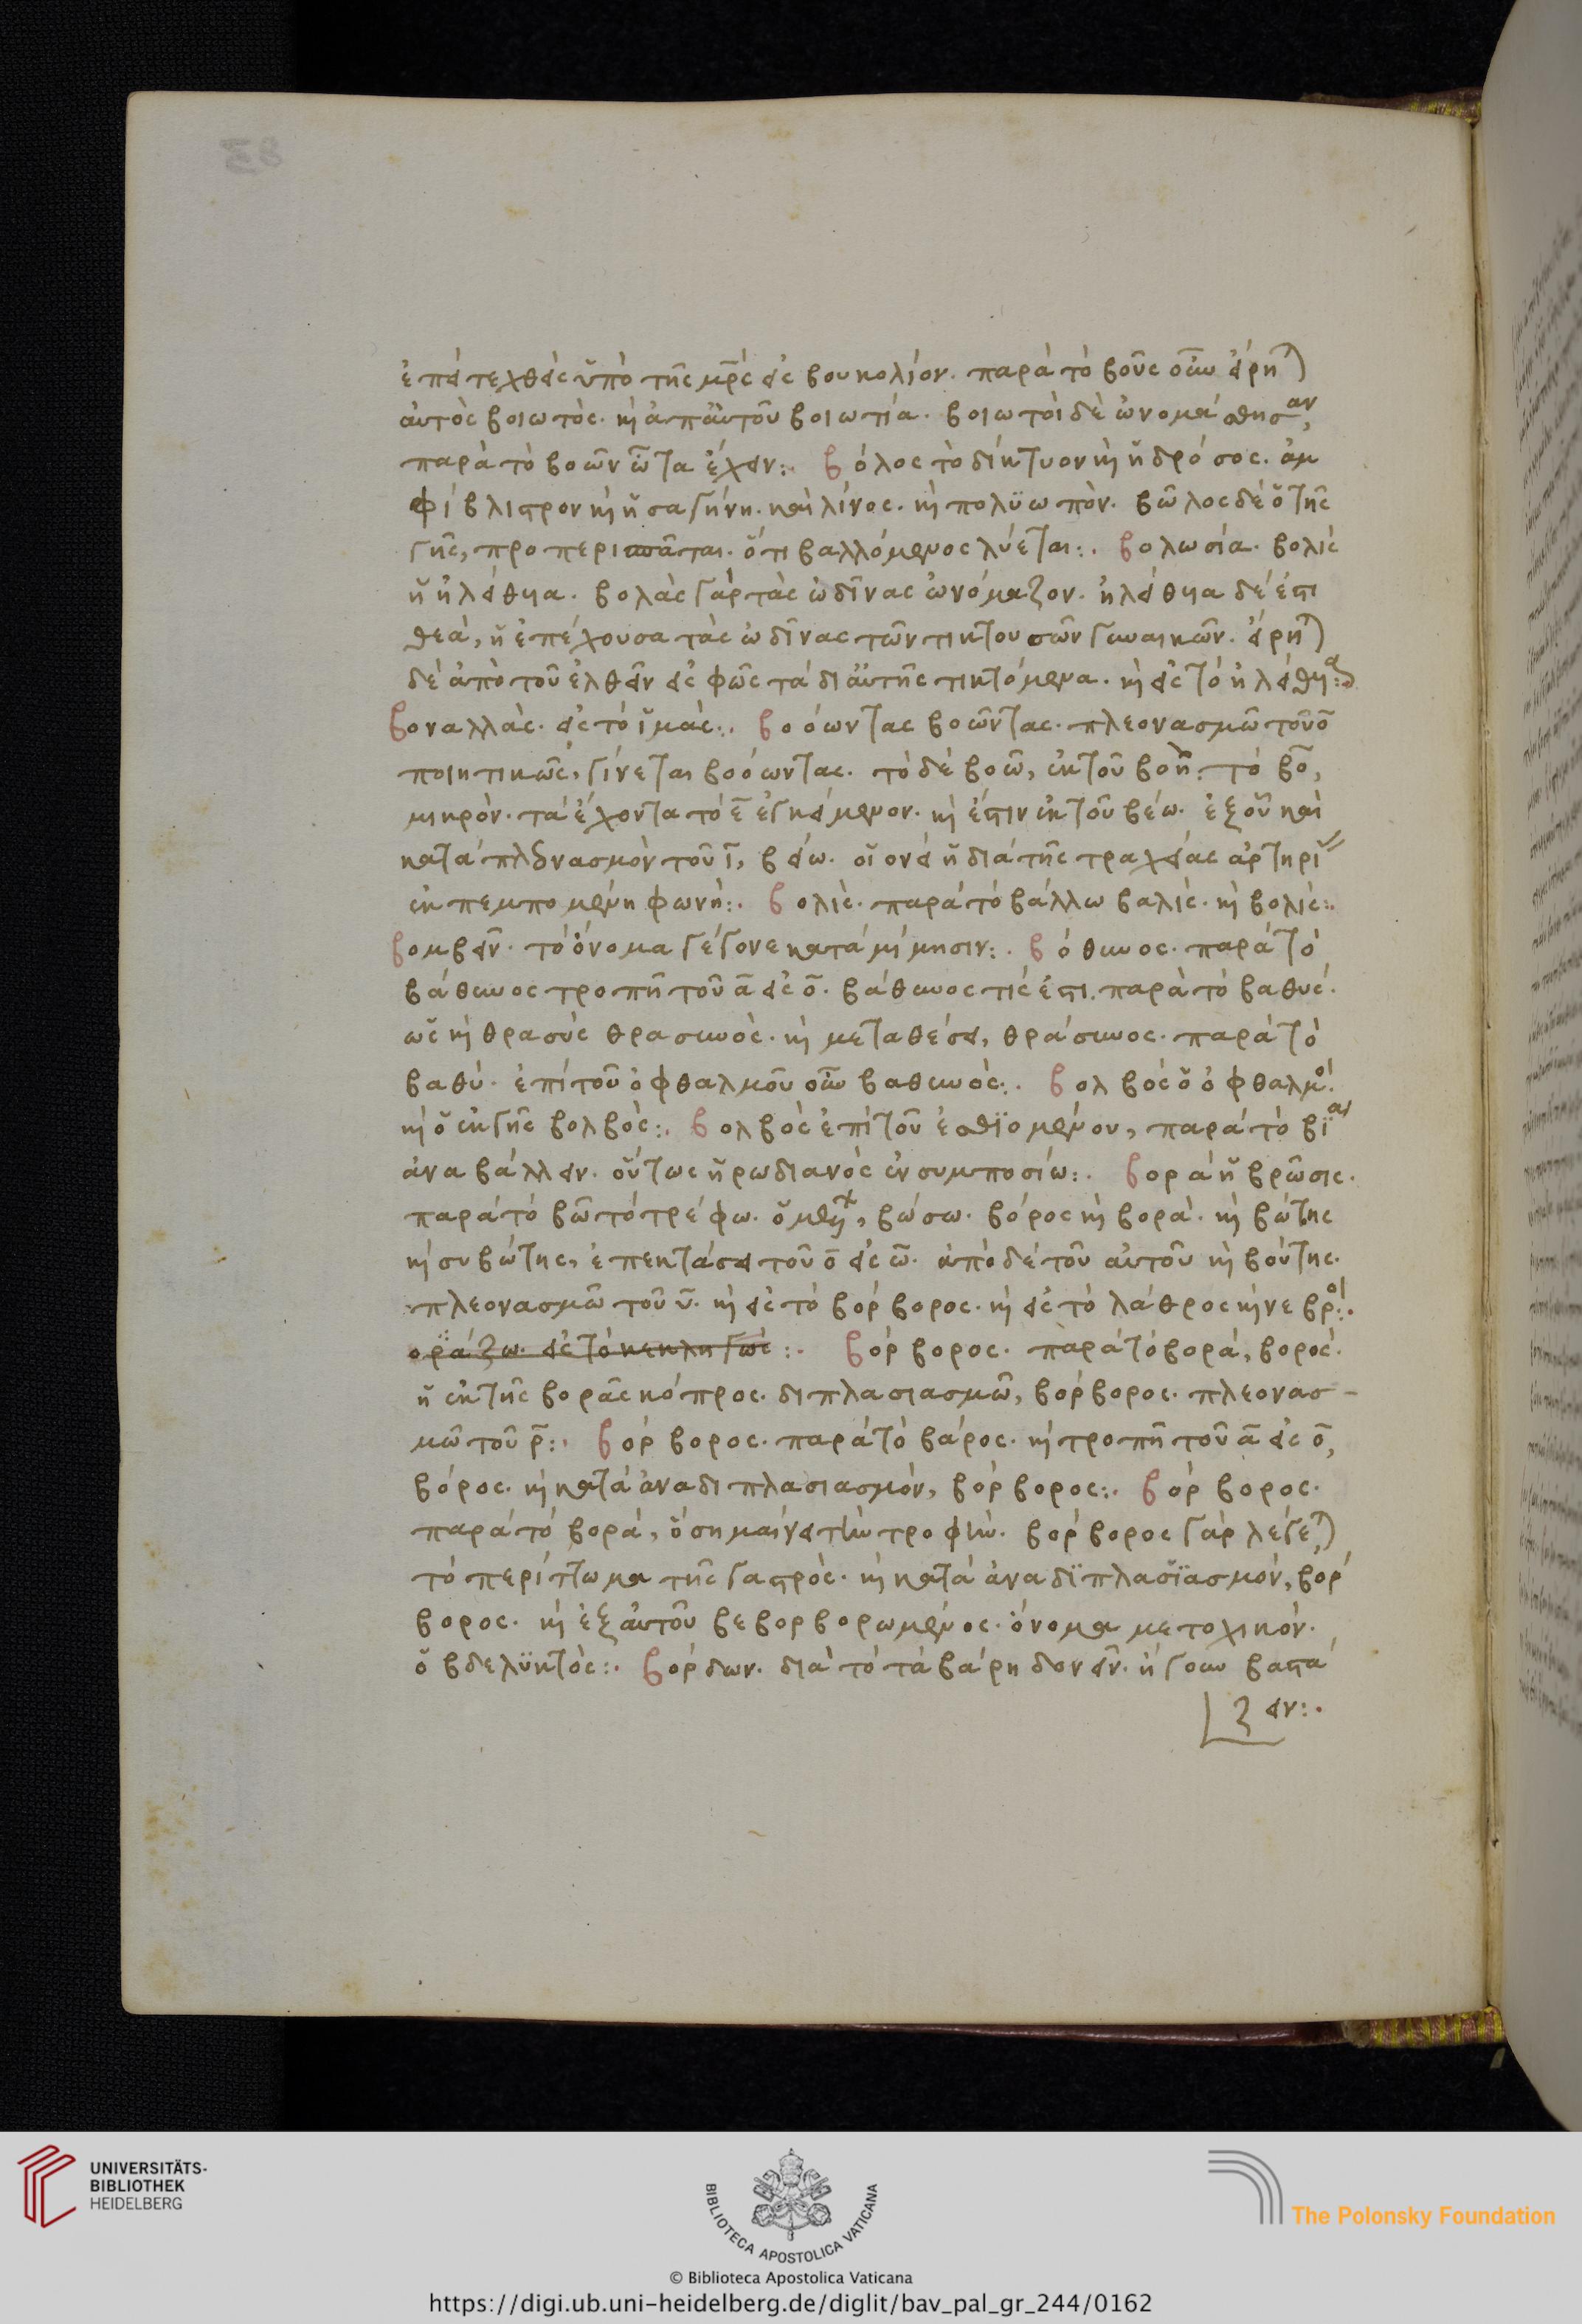 ἐπεὶ τεχθεὶς ὑπὸ τῆς μρ̅ς εἰς βουκολίον. παρὰ τὸ βοῦς οὖν εἴρηται
αὐτὸς βοιωτὸς. καὶ ἀπ' αὐτοῦ βοιωτία. βοιωτοὶ δὲ ὠνομάσθησαν,
παρὰ τὸ βοῶν ὦτα ἔχειν:. βόλος τὸ δίκτυον καὶ ἡ δρόσος. ἀμ
φίβλιστρον καὶ ἡ σαγήνη. καὶ λίνος. καὶ πολϋωπὸν. βῶλος δὲ ὁ τῆς
γῆς, προπερισπᾶται. ὅτι βαλλόμενος λύεται:. βολωσία. βολὶς
ἡ ἠλείθυα. βολὰς γὰρ τὰς ὠδῖνας ὠνόμαζον. ἠλείθυα δέ ἐστι
θεὰ, ἡ ἐπέχουσα τὰς ὠδῖνας τῶν τικτουσῶν γυναικῶν. εἴρηται
δὲ ἀπὸ τοῦ ἐλθεῖν εἰς φῶς τὰ δι' αὐτῆς τικτόμενα. καὶ εἰς τὸ ἠλείθυα:.
βοναλλὰς. εἰς τὸ ἱμὰς:. βοόωντας βοῶντας. πλεονασμῶ τοῦ ο̅
ποιητικῶς, γίνεται βοόωντας. τὸ δὲ βοῶ, ἐκ τοῦ βοὴ. τὸ βο̅,
μικρὸν. τὰ ἔχοντα τὸ ε̅ ἐγκείμενον. καὶ ἔστιν ἐκ τοῦ βέω. ἐξ οὗ καὶ
κατὰ πλεονασμὸν τοῦ ι̅, βείω. οἱονεὶ ἡ διὰ τῆς τραχείας ἀρτηρί
ἐκπεμπομένη φωνὴ:. βολὶς. παρὰ τὸ βάλλω βαλὶς. καὶ βολὶς:.
βομβεῖν. τὸ ὄνομα γέγονε κατὰ μίμησιν:. βόθυνος. παρὰ τὸ
βάθυνος τροπῆ τοῦ α̅ εἰς ο̅. βάθυνος τίς ἐστι. παρὰ τὸ βαθὺς.
ὡς καὶ θρασὺς θρασυνὸς. καὶ μεταθέσει, θράσυνος. παρὰ τὸ
βαθὺ. ἐπὶ τοῦ ὀφθαλμοῦ οὖν βαθυνὸς:. βολβὸς ὁ ὀφθαλμὸς.
καὶ ὁ ἐκ γῆς βολβὸς:. βολβὸς ἐπὶ τοῦ ἐσθϊομένου, παρὰ τὸ βίαι
ἀναβάλλειν. οὕτως ἡρωδιανὸς ἐν συμποσίω:. βορὰ ἡ βρῶσις.
παρὰ τὸ βῶ τὸ τρέφω. ὁ μέλλων, βώσω. βόρος καὶ βορὰ. καὶ βώτης
καὶ συβώτης, ἐπεκτάσει τοῦ ο̅ εἰς ω̅. ἀπὸ δὲ τοῦ αὐτοῦ καὶ βούτης.
πλεονασμῶ τοῦ υ̅. καὶ εἰς τὸ βόρβορος. καὶ εἰς τὸ λάθρος καὶ νεβρός:.
οράζω. εἰς τὸ κεκληγὼς:. βόρβορος. παρὰ τὸ βορά, βορὸς.
ἡ ἐκ τῆς βορᾶς κόπρος. διπλασιασμῶ, βόρβορος. πλεονασ-
μῶ τοῦ ρ̅:. βόρβορος. παρὰ τὸ βάρος. καὶ τροπῆ τοῦ α̅ εἰς ο̅,
βόρος. καὶ κατὰ ἀναδιπλασιασμὸν, βόρβορος:. βόρβορος.
παρὰ τὸ βορά, ὃ σημαίνει τὴν τροφὴν. βόρβορος γὰρ λέγεται
τὸ περίττωμα τῆς γαστρὸς. καὶ κατὰ ἀναδϊπλασϊασμὸν, βόρ
βορος. καὶ ἐξ αὐτοῦ βεβορβορωμένος. ὄνομα μετοχικὸν.
ὁ βδελϋκτὸς:. βόρδων. διὰ τὸ τὰ βάρη δονεῖν. ἤγουν βαστά
ζειν:.
UNIVERSITÄTS-
BIBLIOTHEK
HEIDELBERG
BIBLIOTECA APOSTOLICA VATICANA
The Polonsky Foundation
© Biblioteca Apostolica Vaticana
https://digi.ub.uni-heidelberg.de/diglit/bav_pal_gr_244/0162